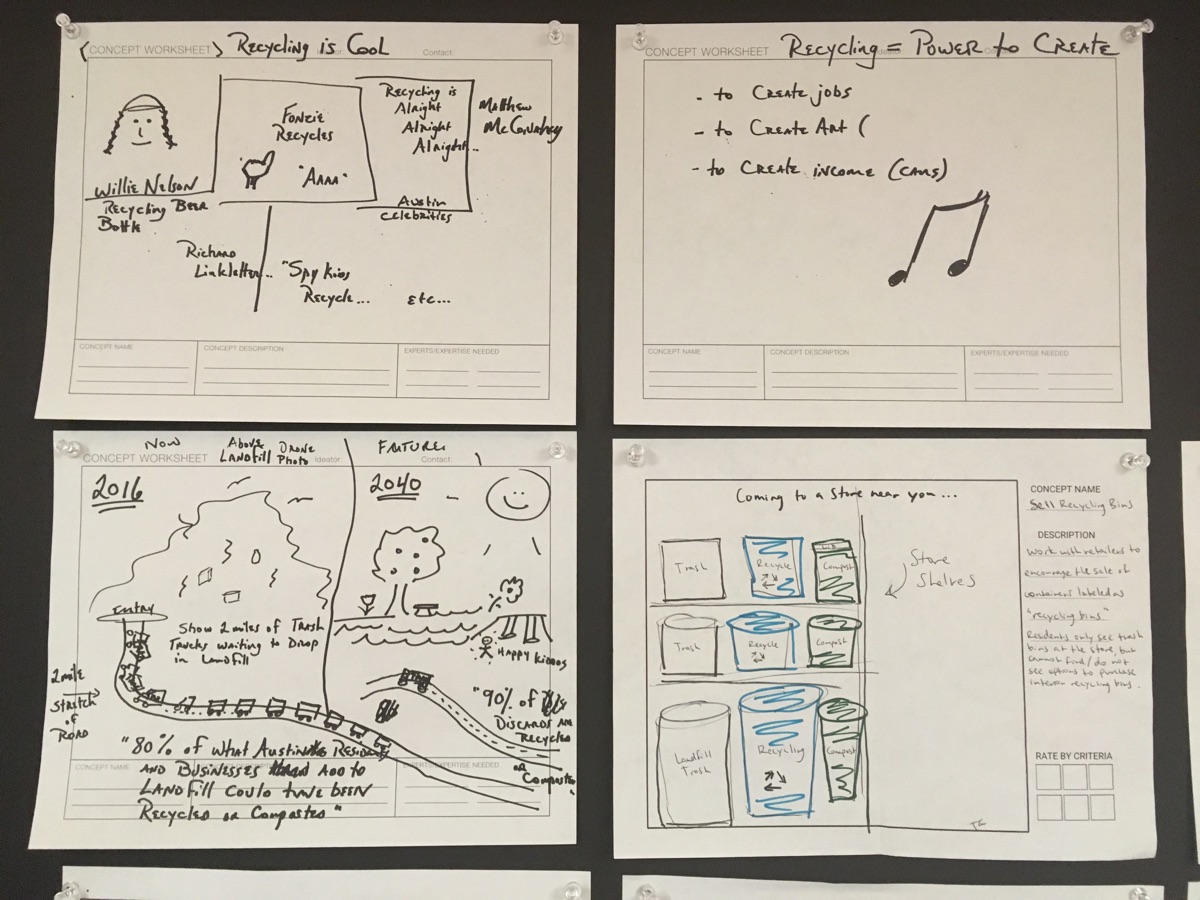 (CONCEPT WORKSHEET) Recycling is Cool
Contact:
Willie Nelson
Recycling Beer
Bottle
Fonzie
Recycles
"Aaaa"
Recycling is
Alright
Alright
Alright..
Austin
Celebrities
Matthew
Richard
Linkletter...
"Spy Kids
Recycle...
etc...
CONCEPT NAME
CONCEPT DESCRIPTION
EXPERTS/EXPERTISE NEEDED
CONCEPT WORKSHEET Recycling = Power to Create
- to Create jobs
- to Create Art (
- to Create income (cans)
CONCEPT NAME
CONCEPT DESCRIPTION
EXPERTS/EXPERTISE NEEDED
Now
Above
Landfill
Drone
Photo
Future
CONCEPT WORKSHEET
Ideator:
Contact:
2016
2040
Entry
Show 2 miles of Trash
Trucks waiting to Drop
in Landfill
2 mile
Stretch
of
Road
Happy Kiddos
"90% of
Discards are
Recycled
or
Composted
"80% of what Austin's Residents
and Businesses add to
Landfill could have been
Recycled or Composted"
CONCEPT NAME
EXPERTS/EXPERTISE NEEDED
Coming to a Store near you...
Trash
Recycle
Compost
Trash
Recycle
Compost
Landfill
Trash
Recycling
Compost
Store
Shelves
CONCEPT NAME
Sell Recycling Bins
DESCRIPTION
Work with retailers to
encourage the sale of
containers labeled as
"recycling bins"
Residents only see trash
bins at the store, but
cannot find/do not
see options to purchase
interior recycling bins.
RATE BY CRITERIA